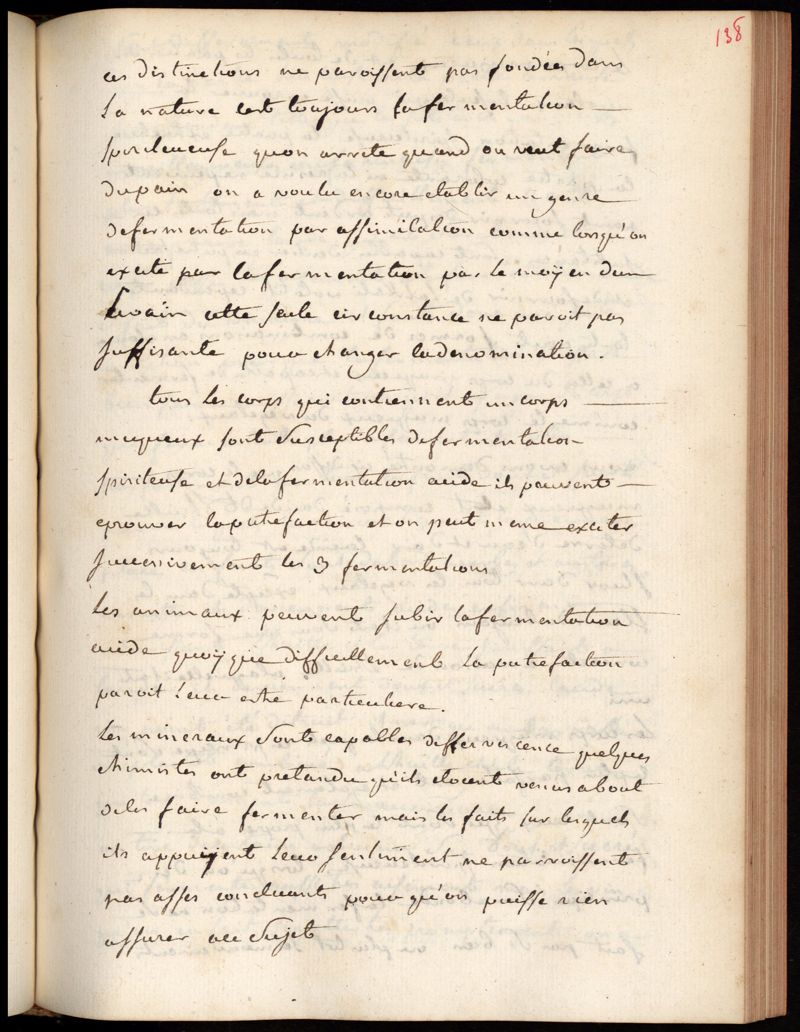 138
ces distinctions ne paroissent pas fondées dans
La nature cest toujours la fermentation
spiritueuse quon arrete quand on veut faire
du pain on a voulu encore etablir un genre
de fermentation par assimilation comme lorsqu'on
excite par la fermentation par le moÿen dun
Levain cette seule circonstance ne paroit pas
suffisante pour changer la denomination.
tous Les corps qui contiennent un corps
muqueux sont susceptibles de fermentation
spiriteuse et de la fermentation acide ils peuvent
eprouver la putrefaction et on peut meme exciter
successivement les 3 fermentations
Les animaux peuvent subir la fermentation
acide quoÿque difficilement La putrefaction
paroit Leur estre particuliere.
Les mineraux sont capables d'effervescence quelques
chimistes ont pretandu qu'ils etoient venus about
de les faire fermenter mais les faits sur lesquels
ils appuÿent Leur sentiment ne parroissent
pas asses concluants pour qu'on puisse rien
assurer a ce sujet